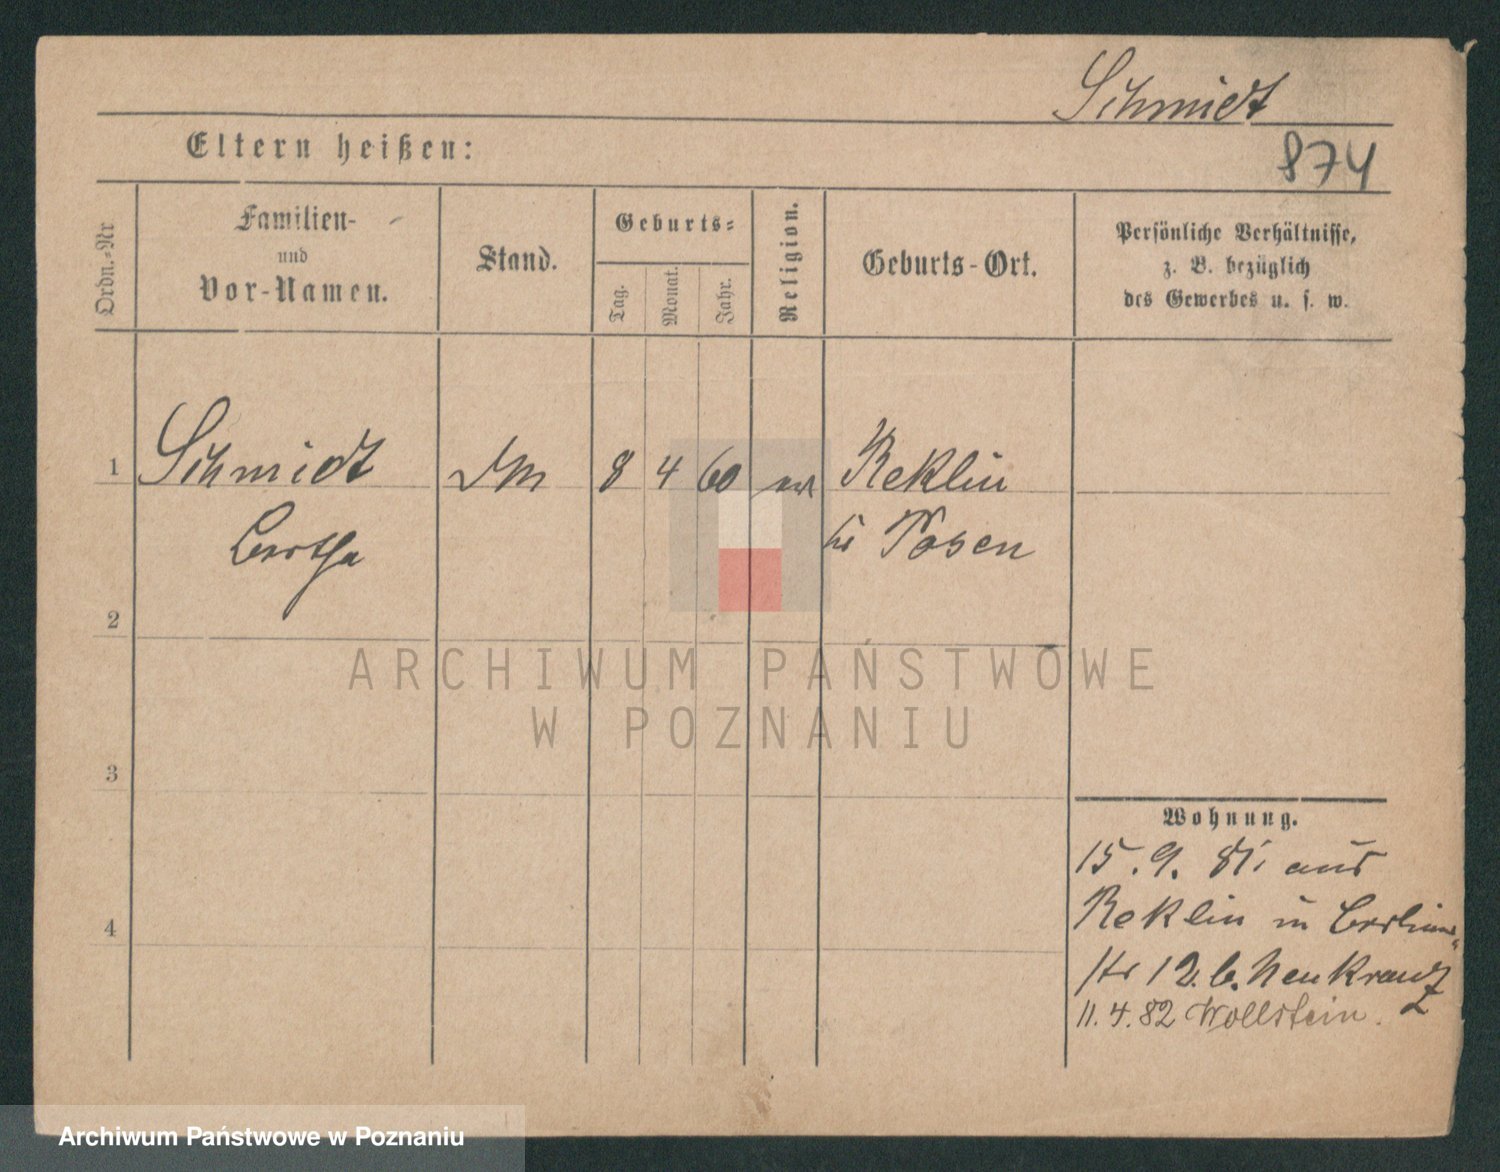 Schmidt
Eltern heißen:
874
Ordn.-Nr
Familien-
und
Vor-Namen.
Stand.
Geburts-
Tag.
Monat.
Jahr.
Religion.
Geburts-Ort.
Persönliche Verhältnisse,
z. B. bezüglich
des Gewerbes u. s. w.
1 Schmidt DM 8 4 60 ev Reklin
Bertha Kr Posen
2
ARCHIWUM PAŃSTWOWE
W POZNANIU
3
Wohnung.
15.9.81. aus
Reklin in Berliner-
str 12. b. Neukranz
11.4.82 Wollstein.
4
Archiwum Państwowe w Poznaniu